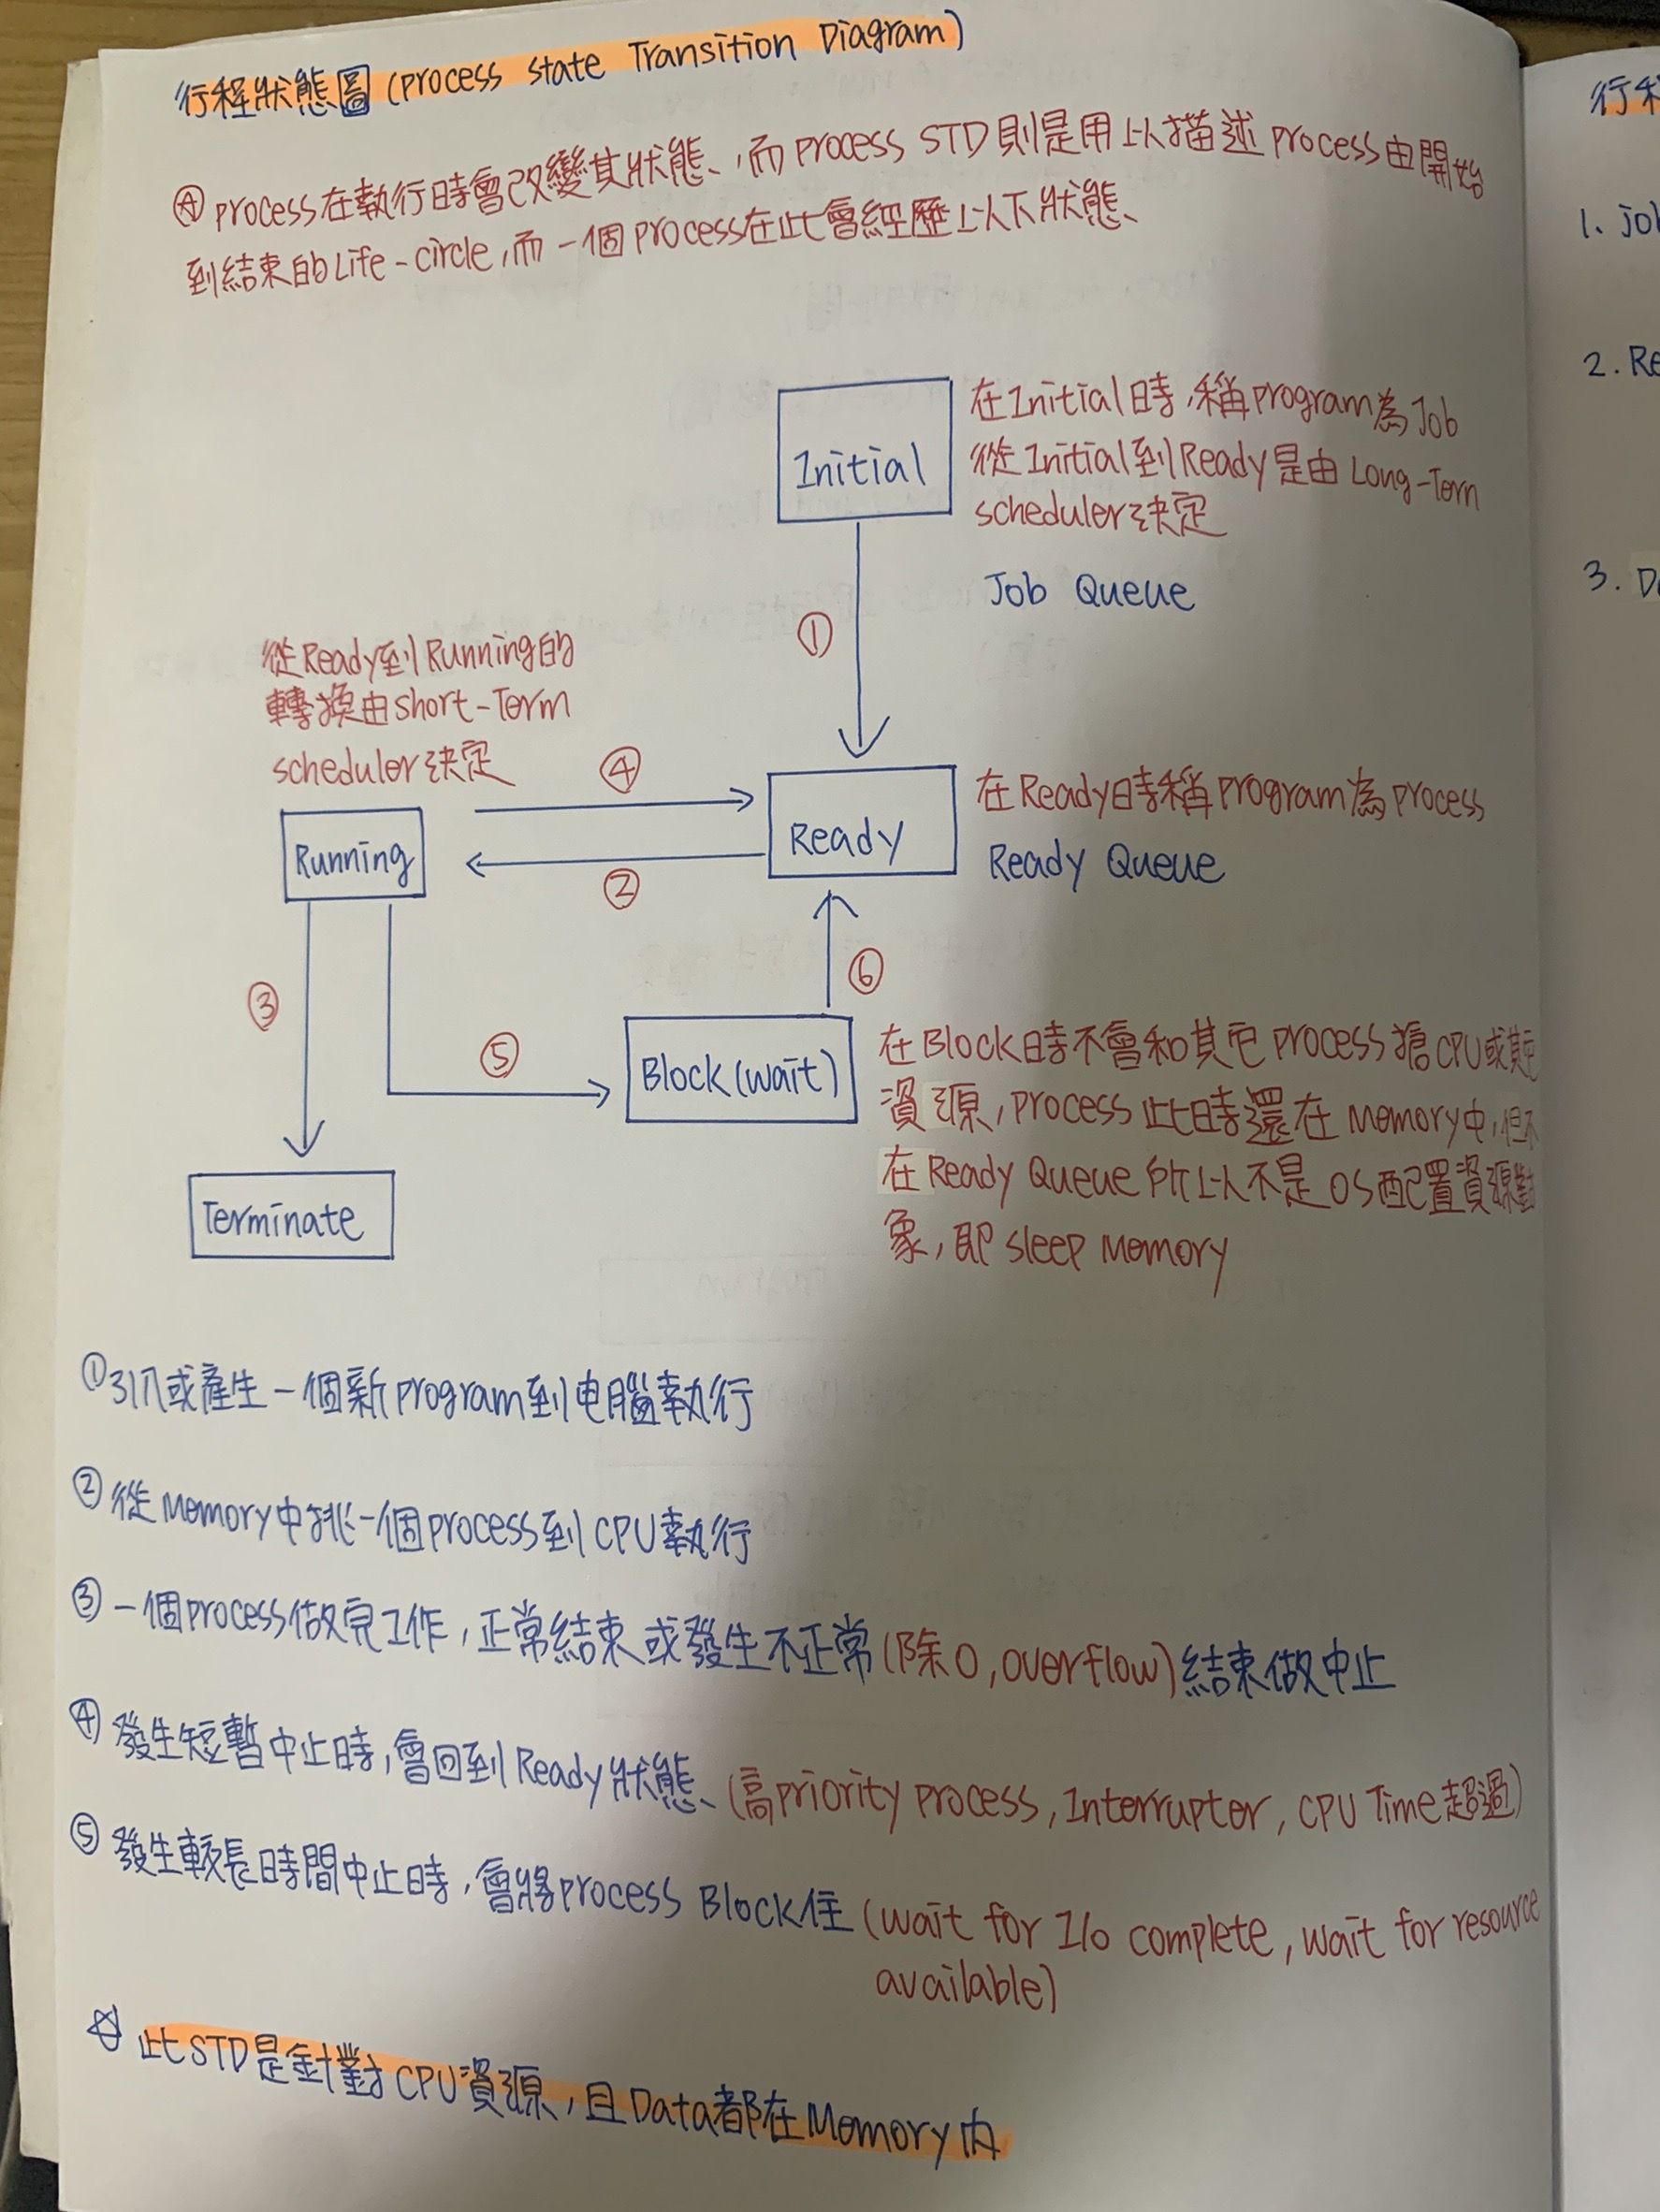 行程狀態圖(process state Transition Diagram)
process在執行時會改變其狀態,而process STD則是用以描述process由開始
到結束的Life-circle,而一個process在此會經歷以下狀態
Initial
在Initial時,稱program為Job
從Initial到Ready是由Long-Term
scheduler決定
Job Queue
①
從Ready到Running的
轉換由short-Term
scheduler決定
④
Running
Ready
②
在Ready時稱program為process
Ready Queue
③
⑤
⑥
Block(wait)
在Block時不會和其它process搶CPU或其它
資源,process此時還在Memory中,但不
在Ready Queue所以不是OS配置資源對
象,即sleep Memory
Terminate
①引入或產生一個新program到电腦執行
②從Memory中挑一個process到CPU執行
③一個process做完工作,正常結束或發生不正常(除0,overflow)結束做中止
④發生短暫中止時,會回到Ready狀態(高priority process,Interrupter,CPU Time超過)
⑤發生較長時間中止時,會將process Block住(wait for I/o complete,wait for resource
available)
此STD是針對CPU資源,且Data都在Memory內
行
1. Jo
2. Re
3.